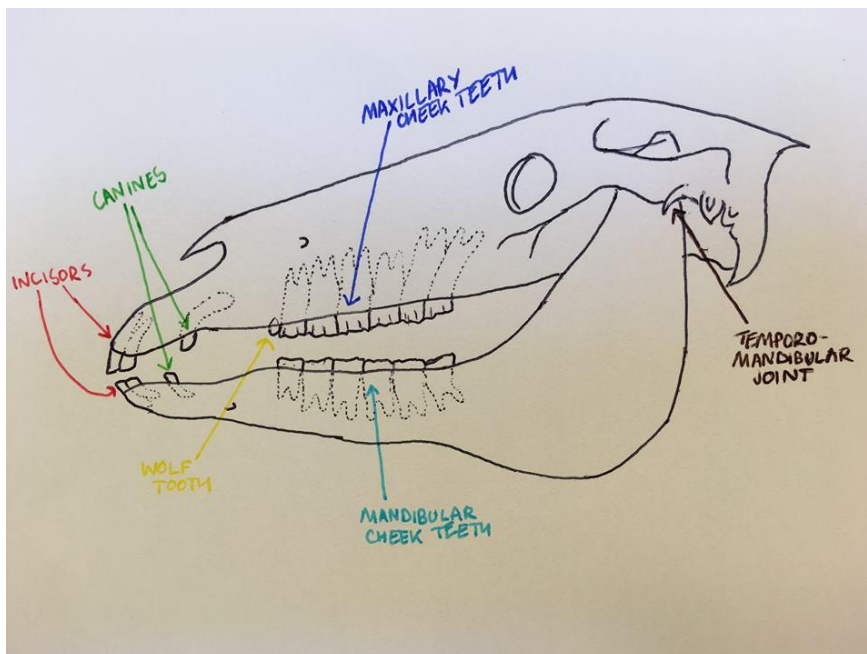 MAXILLARY
CHEEK TEETH
CANINES
INCISORS
TEMPORO-
MANDIBULAR
JOINT
WOLF
TOOTH
MANDIBULAR
CHEEK TEETH